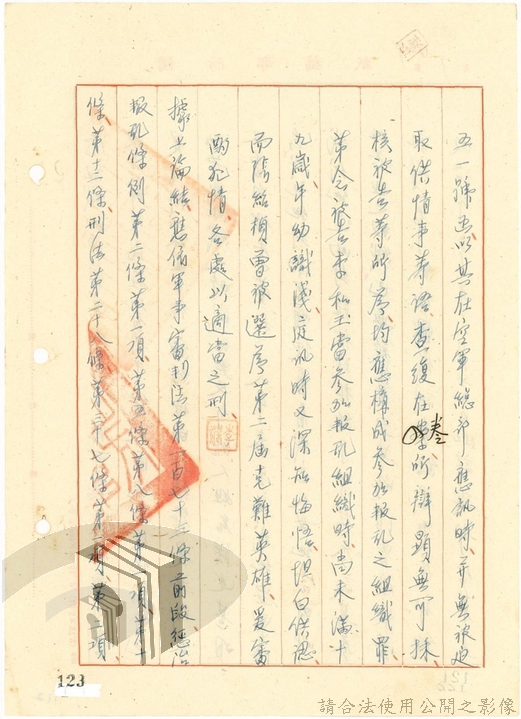 五一號函以其在空軍總部應訊時并無被迫
取供情事等語查復在卷所辯顯無可採
核被告等所為均應構成參加叛亂之組織罪
第念被告李和玉當參加叛亂組織時尚未滿十
九歲年幼識淺庭訊時又深知悔悟坦白供認
而張紹楨曾被選為第二屆克難英雄爰審
酌犯情各處以適當之刑
據上論結應依軍事審判法第一百七十三條前段懲治
叛亂條例第二條第一項第五條第八條第一項第十
條第十二條刑法第二十八條第三十七條第項第項
123
請合法使用公開之影像